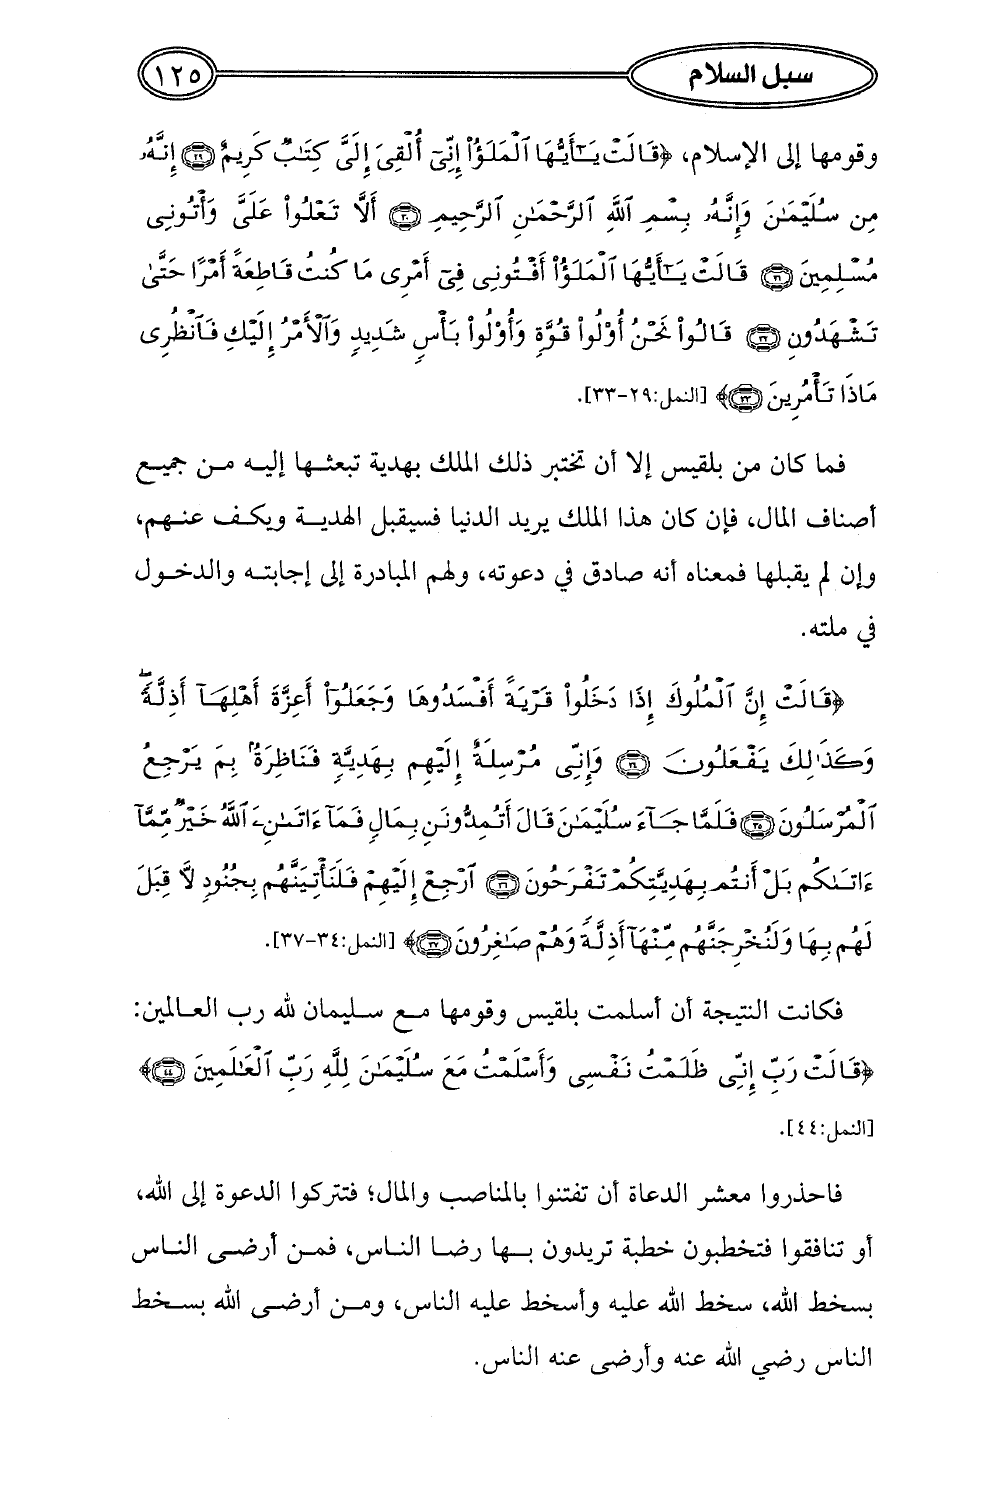 سبل السلام ١٢٥
وقومها إلى الإسلام، ﴿قَالَتْ يَـٰٓأَيُّهَا ٱلْمَلَؤُا۟ إِنِّىٓ أُلْقِىَ إِلَىَّ كِتَـٰبٌ كَرِيمٌ ۝٢٩ إِنَّهُۥ
مِن سُلَيْمَـٰنَ وَإِنَّهُۥ بِسْمِ ٱللَّهِ ٱلرَّحْمَـٰنِ ٱلرَّحِيمِ ۝٣٠ أَلَّا تَعْلُوا۟ عَلَىَّ وَأْتُونِى
مُسْلِمِينَ ۝٣١ قَالَتْ يَـٰٓأَيُّهَا ٱلْمَلَؤُا۟ أَفْتُونِى فِىٓ أَمْرِى مَا كُنتُ قَاطِعَةً أَمْرًا حَتَّىٰ
تَشْهَدُونِ ۝٣٢ قَالُوا۟ نَحْنُ أُو۟لُوا۟ قُوَّةٍ وَأُو۟لُوا۟ بَأْسٍ شَدِيدٍ وَٱلْأَمْرُ إِلَيْكِ فَٱنظُرِى
مَاذَا تَأْمُرِينَ ۝٣٣﴾ [النمل:٢٩-٣٣].
فما كان من بلقيس إلا أن تختبر ذلك الملك بهدية تبعثها إليه من جميع
أصناف المال، فإن كان هذا الملك يريد الدنيا فسيقبل الهدية ويكف عنهم،
وإن لم يقبلها فمعناه أنه صادق في دعوته، ولهم المبادرة إلى إجابته والدخول
في ملته.
﴿قَالَتْ إِنَّ ٱلْمُلُوكَ إِذَا دَخَلُوا۟ قَرْيَةً أَفْسَدُوهَا وَجَعَلُوٓا۟ أَعِزَّةَ أَهْلِهَآ أَذِلَّةً ۖ
وَكَذَٰلِكَ يَفْعَلُونَ ۝٣٤ وَإِنِّى مُرْسِلَةٌ إِلَيْهِم بِهَدِيَّةٍ فَنَاظِرَةٌۢ بِمَ يَرْجِعُ
ٱلْمُرْسَلُونَ ۝٣٥ فَلَمَّا جَآءَ سُلَيْمَـٰنَ قَالَ أَتُمِدُّونَنِ بِمَالٍ فَمَآ ءَاتَىٰنِۦَ ٱللَّهُ خَيْرٌ مِّمَّآ
ءَاتَىٰكُم بَلْ أَنتُم بِهَدِيَّتِكُمْ تَفْرَحُونَ ۝٣٦ ٱرْجِعْ إِلَيْهِمْ فَلَنَأْتِيَنَّهُم بِجُنُودٍ لَّا قِبَلَ
لَهُم بِهَا وَلَنُخْرِجَنَّهُم مِّنْهَآ أَذِلَّةً وَهُمْ صَـٰغِرُونَ ۝٣٧﴾ [النمل:٣٤-٣٧].
فكانت النتيجة أن أسلمت بلقيس وقومها مع سليمان لله رب العالمين:
﴿قَالَتْ رَبِّ إِنِّى ظَلَمْتُ نَفْسِى وَأَسْلَمْتُ مَعَ سُلَيْمَـٰنَ لِلَّهِ رَبِّ ٱلْعَـٰلَمِينَ ۝٤٤﴾
[النمل:٤٤].
فاحذروا معشر الدعاة أن تفتنوا بالمناصب والمال؛ فتتركوا الدعوة إلى الله،
أو تنافقوا فتخطبون خطبة تريدون بها رضا الناس، فمن أرضى الناس
بسخط الله، سخط الله عليه وأسخط عليه الناس، ومن أرضى الله بسخط
الناس رضي الله عنه وأرضى عنه الناس.